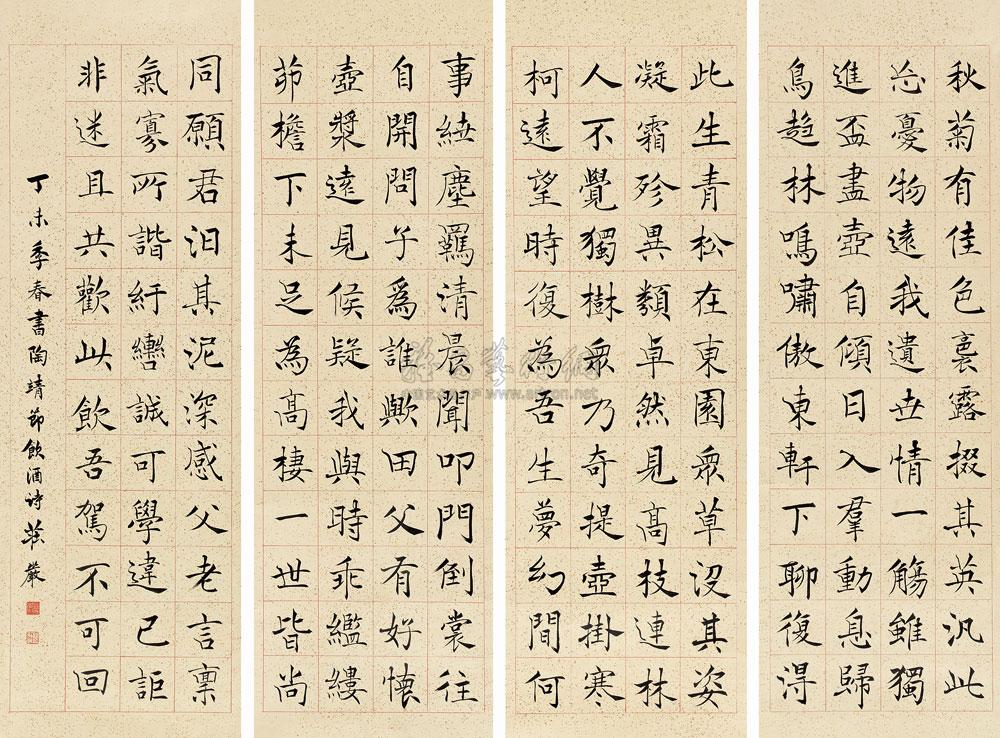 秋菊有佳色裛露掇其英汎此
忘憂物遠我遺世情一觴雖獨
進盃盡壺自傾日入羣動息歸
鳥趨林鳴嘯傲東軒下聊復得
此生青松在東園眾草沒其姿
凝霜殄異類卓然見高枝連林
人不覺獨樹眾乃奇提壺掛寒
柯遠望時復為吾生夢幻間何
事紲塵羈清晨聞叩門倒裳往
自開問子爲誰歟田父有好懷
壺漿遠見候疑我與時乖繿縷
茆檐下未足為高棲一世皆尚
同願君汩其泥深感父老言稟
氣寡所諧紆轡誠可學違己詎
非迷且共歡此飲吾駕不可回
丁未季春書陶靖節飲酒詩 莊嚴
www.artron.net